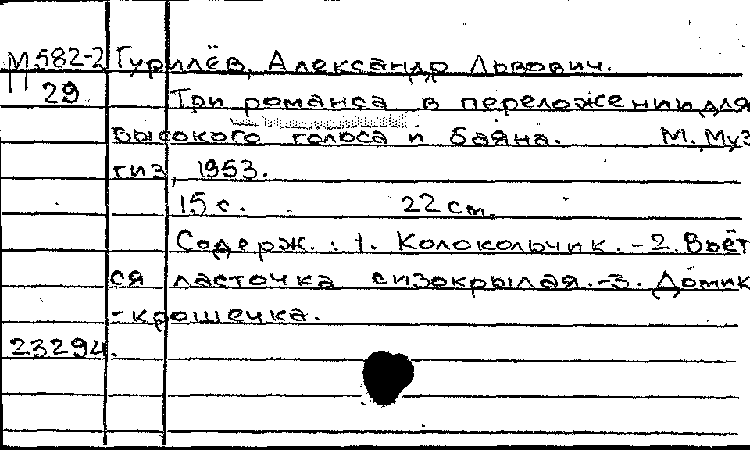 М582-2 Гурилёв, Александр Львович.
П 29 Три романса в переложении для
высокого голоса и баяна. М., Муз
гиз, 1953.
15 с. 22 см.
Содерж.: 1. Колокольчик. - 2. Вьёт
ся ласточка сизокрылая. - 3. Домик
- крошечка.
23294.